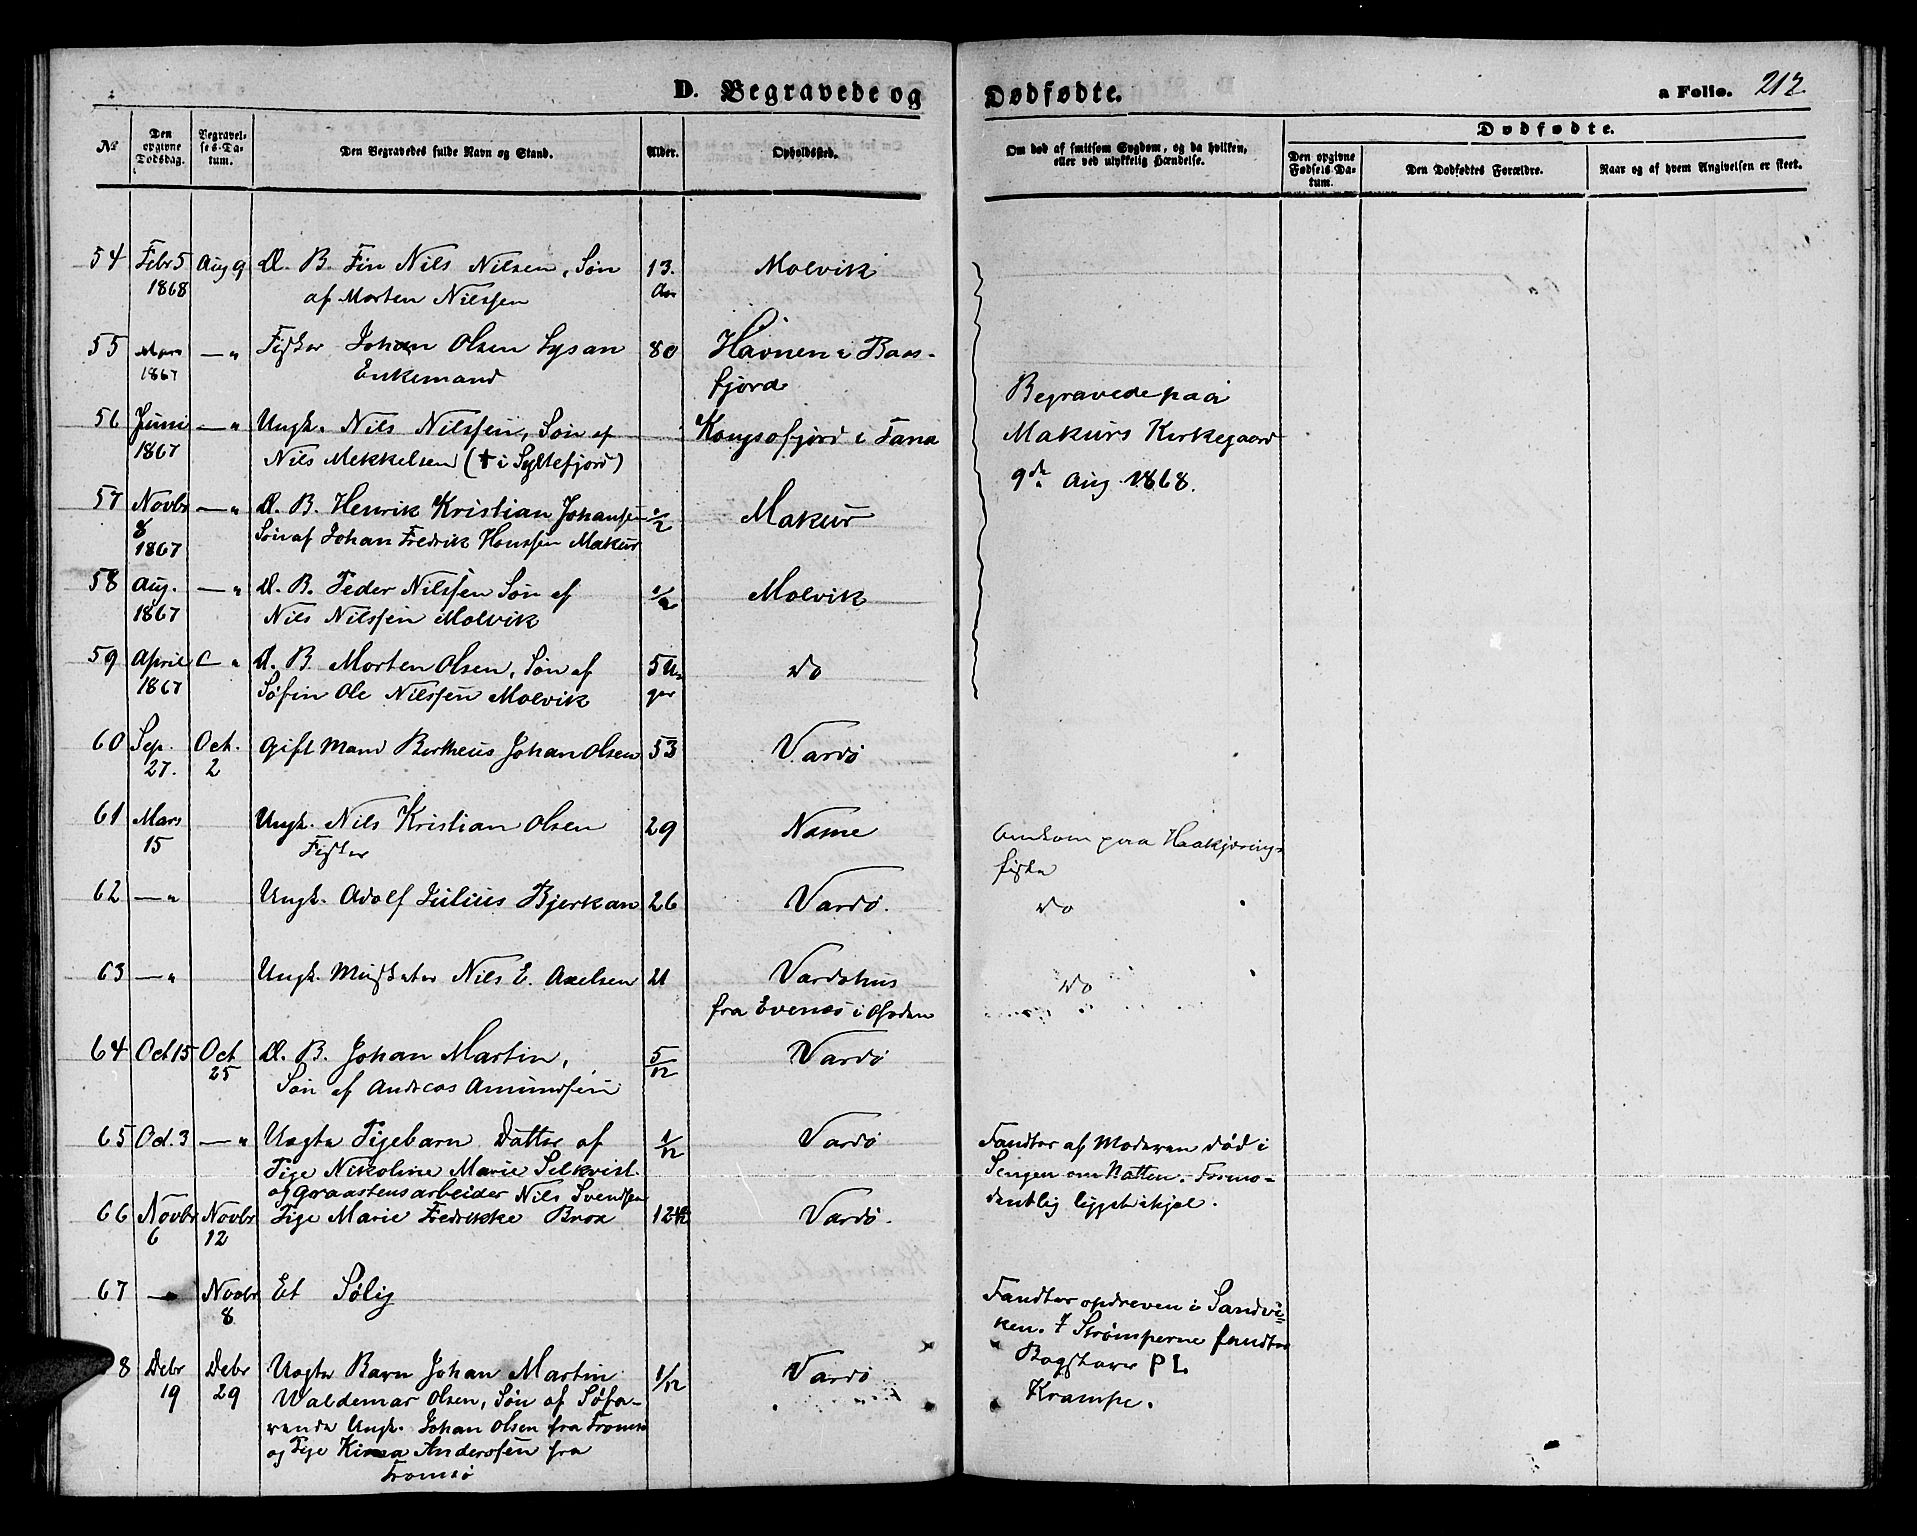 D. Begravede og
Dødfødte.
a Folio. 212.
№
Den opgivne Dødsdag.
Begravelses-Datum.
Den Begravedes fulde Navn og Stand.
Alder.
Opholdssted.
Om død af smitsom Sygdom, og da hvilken, eller ved ulykkelig Hændelse.
Dødfødte.
Den opgivne Fødsels Datum.
Den Dødfødtes Forældre.
Naar og af hvem Angivelsen er skeet.
54 Febr 5 Aug 9 D. B. Fin Nils Nilsen, Søn 13. Molvik
1868 af Morten Nilssen Aar
55 Mars — " Fisker Johan Olsen Sysan 80 Havnen i Baas-
1867 Enkemand fjord
56 Juni — " Ungk. Nils Nilssen, Søn af Kongsofjord i Tana
1867 Nils Mekkelsen († i Syltefjord)
57 Novbr — " D. B. Henrik Kristian Johansen 1/2 Makur
8 Søn af Johan Fredrik Hanssen Makur
1867
58 Aug. — " D. B. Peder Nilssen Søn af 1/2 Molvik
1867 Nils Nilssen Molvik
59 April — " D. B. Morten Olsen, Søn af 5 U- Do
1867 Søfin Ole Nilssen Molvik ger
Begravede paa
Makurs Kirkegaard
9de Aug 1868.
60 Sep. Oct. Gift Mand Bertheus Johan Olsen 53 Vardø
27. 2
61 Mars Ungk. Nils Kristian Olsen 29 Name Omkom paa Haakjærings-
15 Fisker fiske
62 — " Ungk. Adolf Julius Bjerkan 26 Vardø. Do
63 — " Ungk. Musketer Nils E. Axelsen 21 Vardøhus Do
fra Evenæs i Ofoden
64 Oct 15 Oct D. B. Johan Martin, 5/12 Vardø
25 Søn af Andreas Amundsen
65 Oct. 3 — " Uægte Pigebarn Datter af 1/12 Vardø Fandtes af Moderen død i
Pige Nikoline Marie Selkvist Sengen om Natten. Formo-
og Graastensarbeider Nils Svendsen dentlig ligget ihjel.
66 Novbr Novbr Pige Marie Fredrikke Brox 12 Vardø.
6 12
67 — " Novbr Et Sølig Fandtes opdreven i Sandvi-
8 ken. I Strømperne fandtes
Bogstaver P L
Krampe.
8 Debr Debr Uægte Barn Johan Martin 1/12 Vardø
19 29 Waldemar Olsen, Søn af Søfa-
rende Ungk. Johan Olsen fra Tromsø
og Pige Anderssen fra
Tromsø